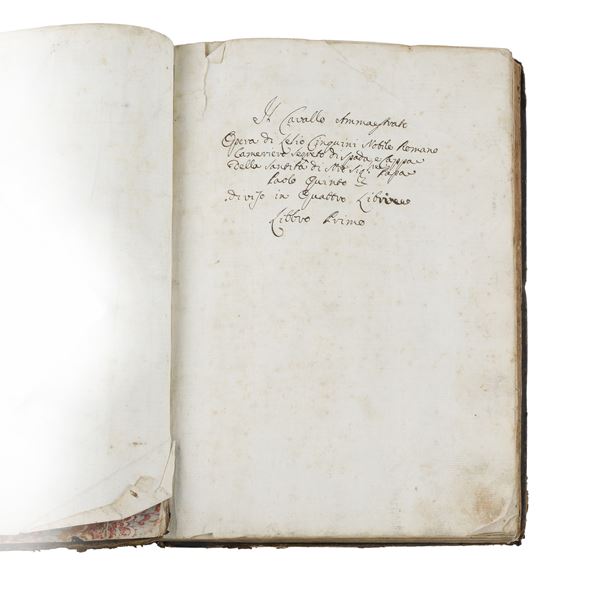 Il Cavallo Ammaestrato
Opera di Lelio Cinquini Nobile Romano
Cameriere Segreto di Spada e Cappa
Della Santità di N̄ro Sigr̄e Papa
Paolo Quinto
diviso in Quattro Libri
Libbro Primo